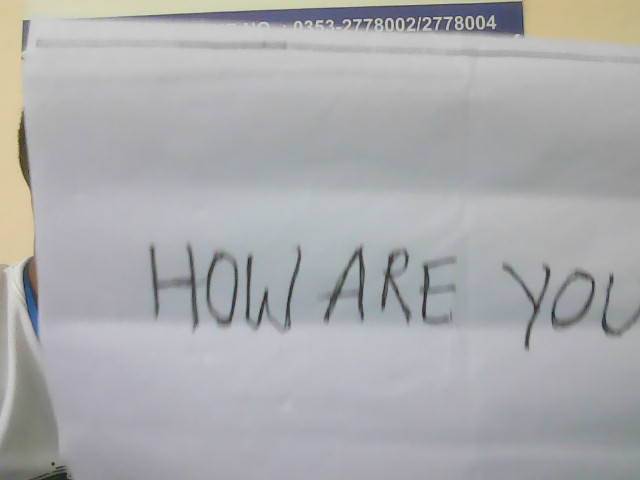 NO. : 0353-2778002/2778004
HOW ARE YOU